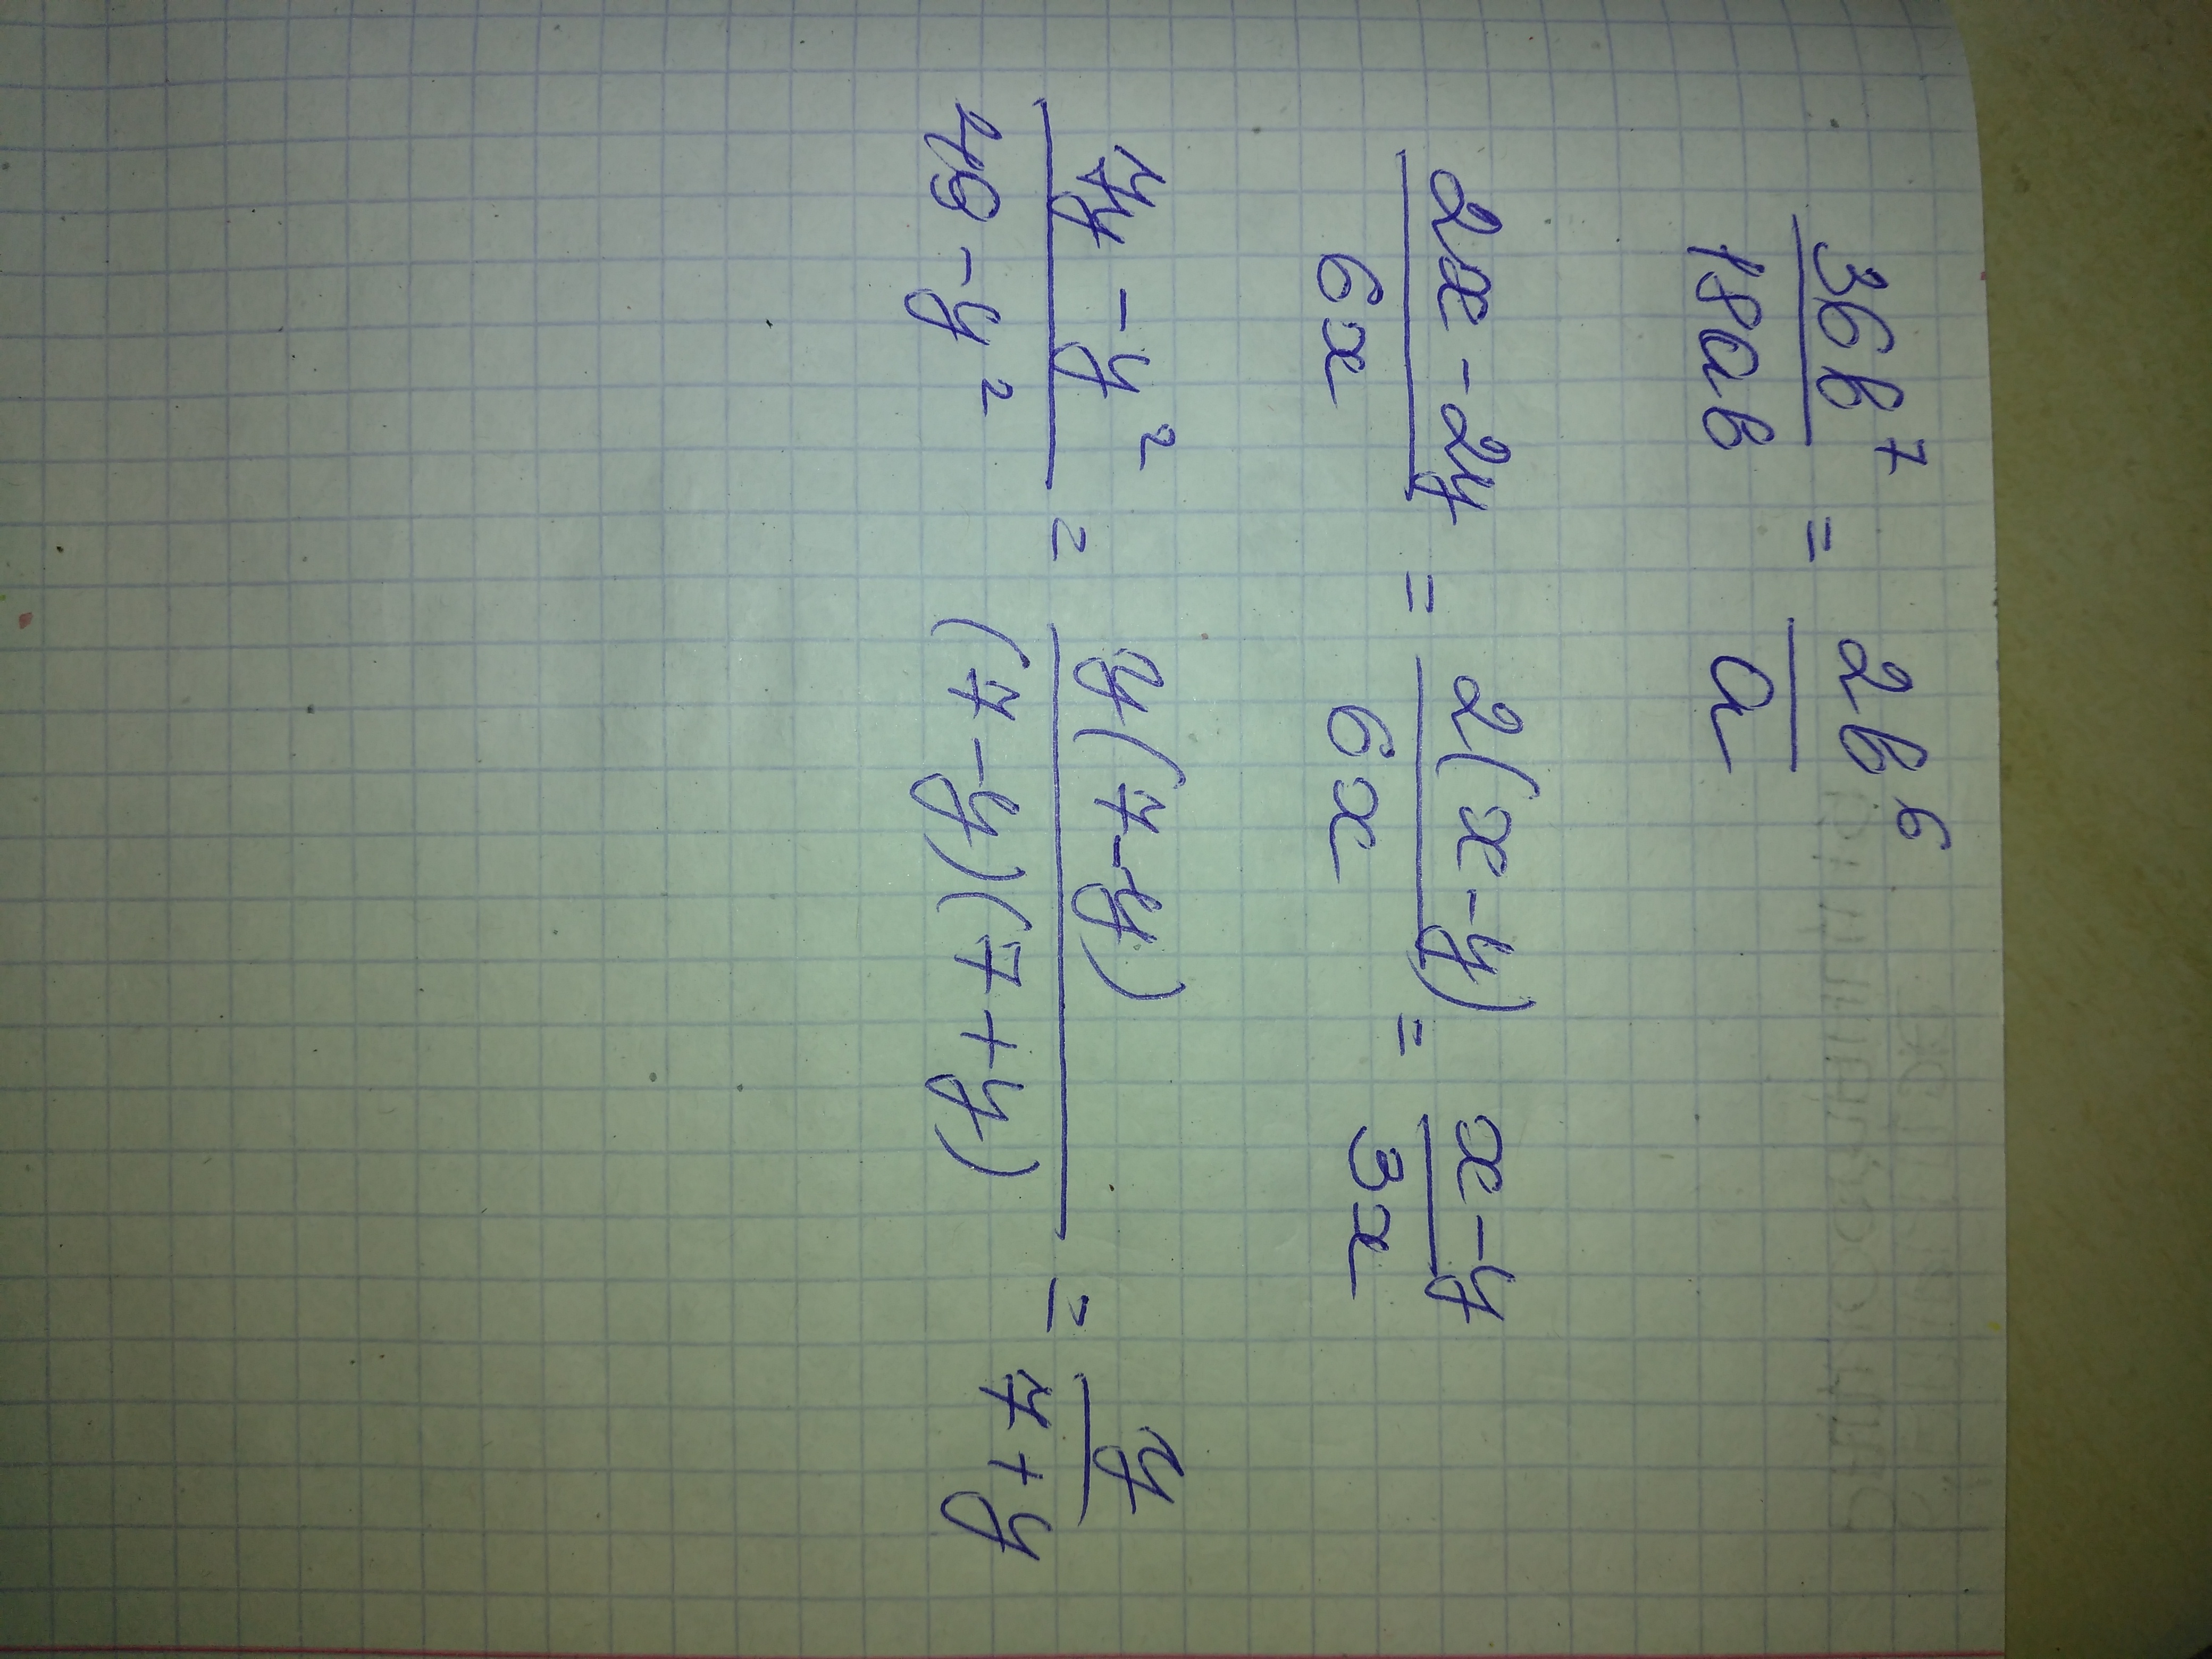 36b⁷/18ab = 2b⁶/a
(2x - 2y)/6x = 2(x - y)/6x = (x - y)/3x
(7y - y²)/(49 - y²) = y(7 - y)/((7 - y)(7 + y)) = y/(7 + y)